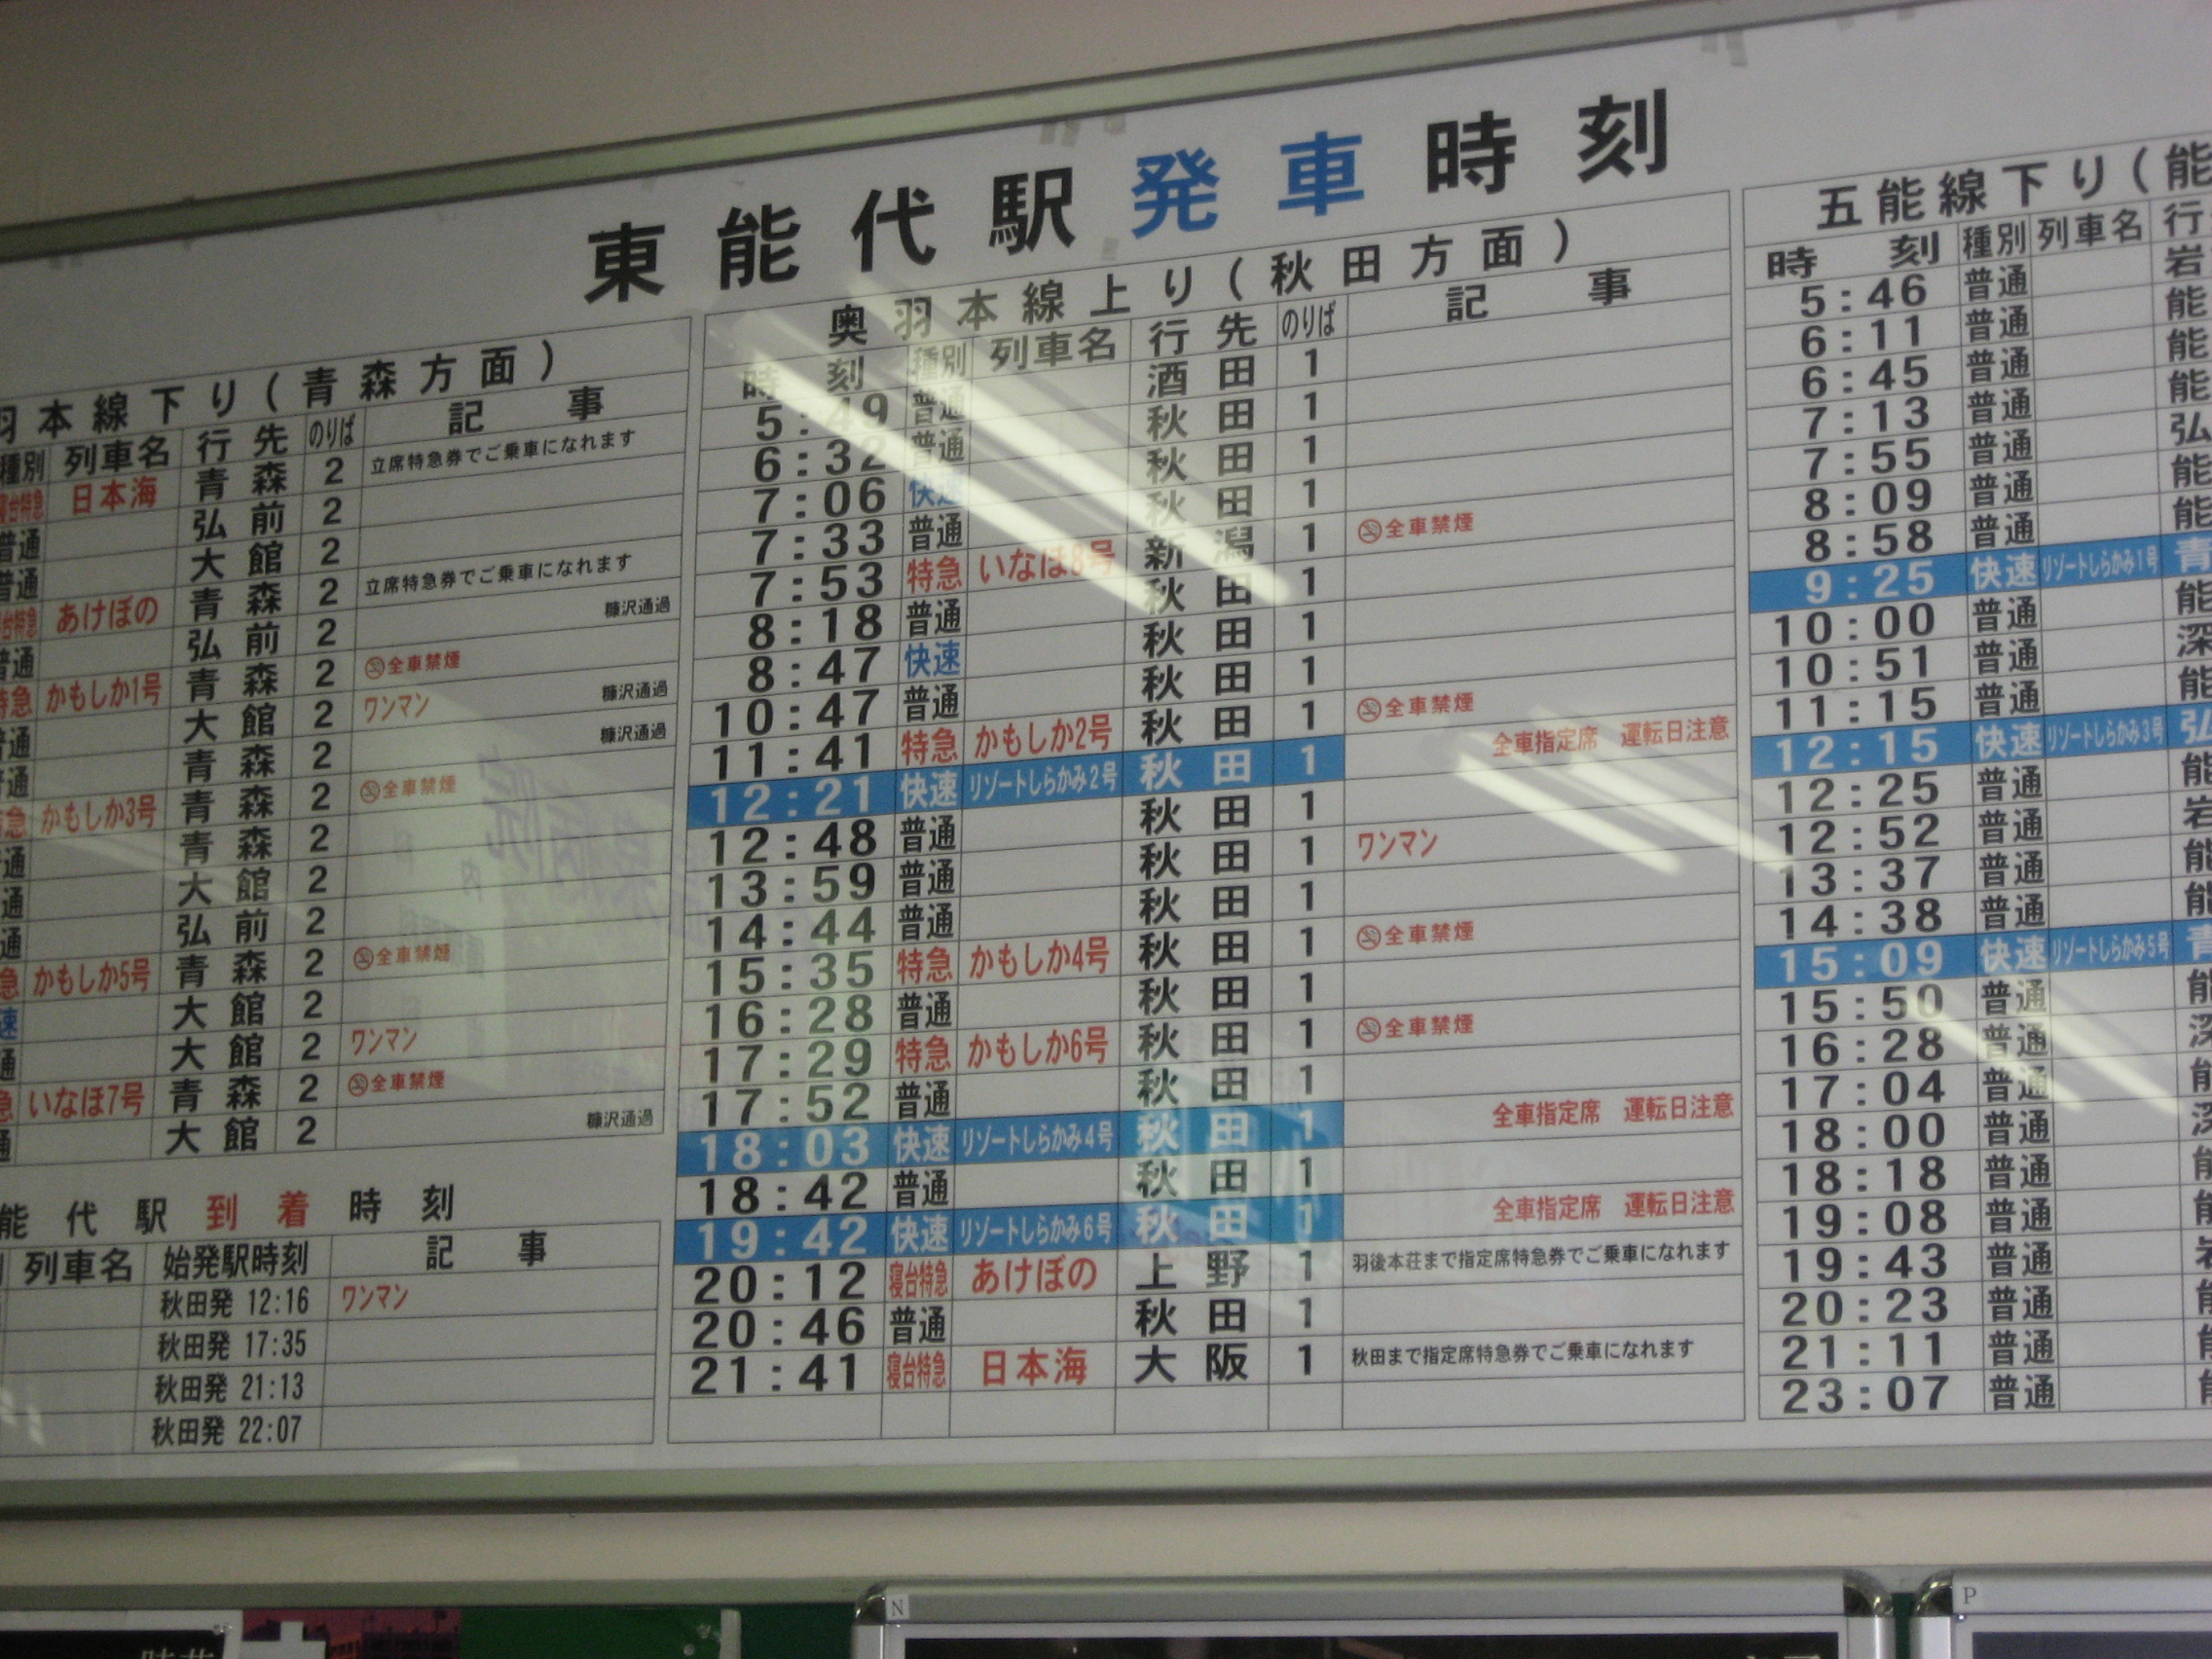 東能代駅発車時刻
羽本線下り(青森方面)
種別 列車名 行先 のりば 記事
寝台特急 日本海 青森 2 立席特急券でご乗車になれます
普通 弘前 2
普通 大館 2
寝台特急 あけぼの 青森 2 立席特急券でご乗車になれます
普通 弘前 2 糠沢通過
特急 かもしか1号 青森 2 全車禁煙
普通 大館 2 ワンマン 糠沢通過
普通 青森 2 糠沢通過
特急 かもしか3号 青森 2 全車禁煙
普通 青森 2
通 大館 2
通 弘前 2
急 かもしか5号 青森 2 全車禁煙
速 大館 2
通 大館 2 ワンマン
急 いなほ7号 青森 2 全車禁煙
通 大館 2 糠沢通過
能代駅到着時刻
列車名 始発駅時刻 記事
秋田発 12:16 ワンマン
秋田発 17:35
秋田発 21:13
秋田発 22:07
奥羽本線上り(秋田方面)
時刻 種別 列車名 行先 のりば 記事
5:49 普通 酒田 1
6:32 普通 秋田 1
7:06 快速 秋田 1
7:33 普通 秋田 1
7:53 特急 いなほ8号 新潟 1 全車禁煙
8:18 普通 秋田 1
8:47 快速 秋田 1
10:47 普通 秋田 1
11:41 特急 かもしか2号 秋田 1 全車禁煙
12:21 快速 リゾートしらかみ2号 秋田 1 全車指定席 運転日注意
12:48 普通 秋田 1
13:59 普通 秋田 1 ワンマン
14:44 普通 秋田 1
15:35 特急 かもしか4号 秋田 1 全車禁煙
16:28 普通 秋田 1
17:29 特急 かもしか6号 秋田 1 全車禁煙
17:52 普通 秋田 1
18:03 快速 リゾートしらかみ4号 秋田 1 全車指定席 運転日注意
18:42 普通 秋田 1
19:42 快速 リゾートしらかみ6号 秋田 1 全車指定席 運転日注意
20:12 寝台特急 あけぼの 上野 1 羽後本荘まで指定席特急券でご乗車になれます
20:46 普通 秋田 1
21:41 寝台特急 日本海 大阪 1 秋田まで指定席特急券でご乗車になれます
五能線下り(能
時刻 種別 列車名 行
5:46 普通 岩
6:11 普通 能
6:45 普通 能
7:13 普通 能
7:55 普通 弘
8:09 普通 能
8:58 普通 能
9:25 快速 リゾートしらかみ1号 青
10:00 普通 能
10:51 普通 深
11:15 普通 能
12:15 快速 リゾートしらかみ3号 弘
12:25 普通 能
12:52 普通 岩
13:37 普通 能
14:38 普通 能
15:09 快速 リゾートしらかみ5号 青
15:50 普通 能
16:28 普通 深
17:04 普通 能
18:00 普通 深
18:18 普通 能
19:08 普通 能
19:43 普通 岩
20:23 普通 能
21:11 普通 能
23:07 普通 能
N
P